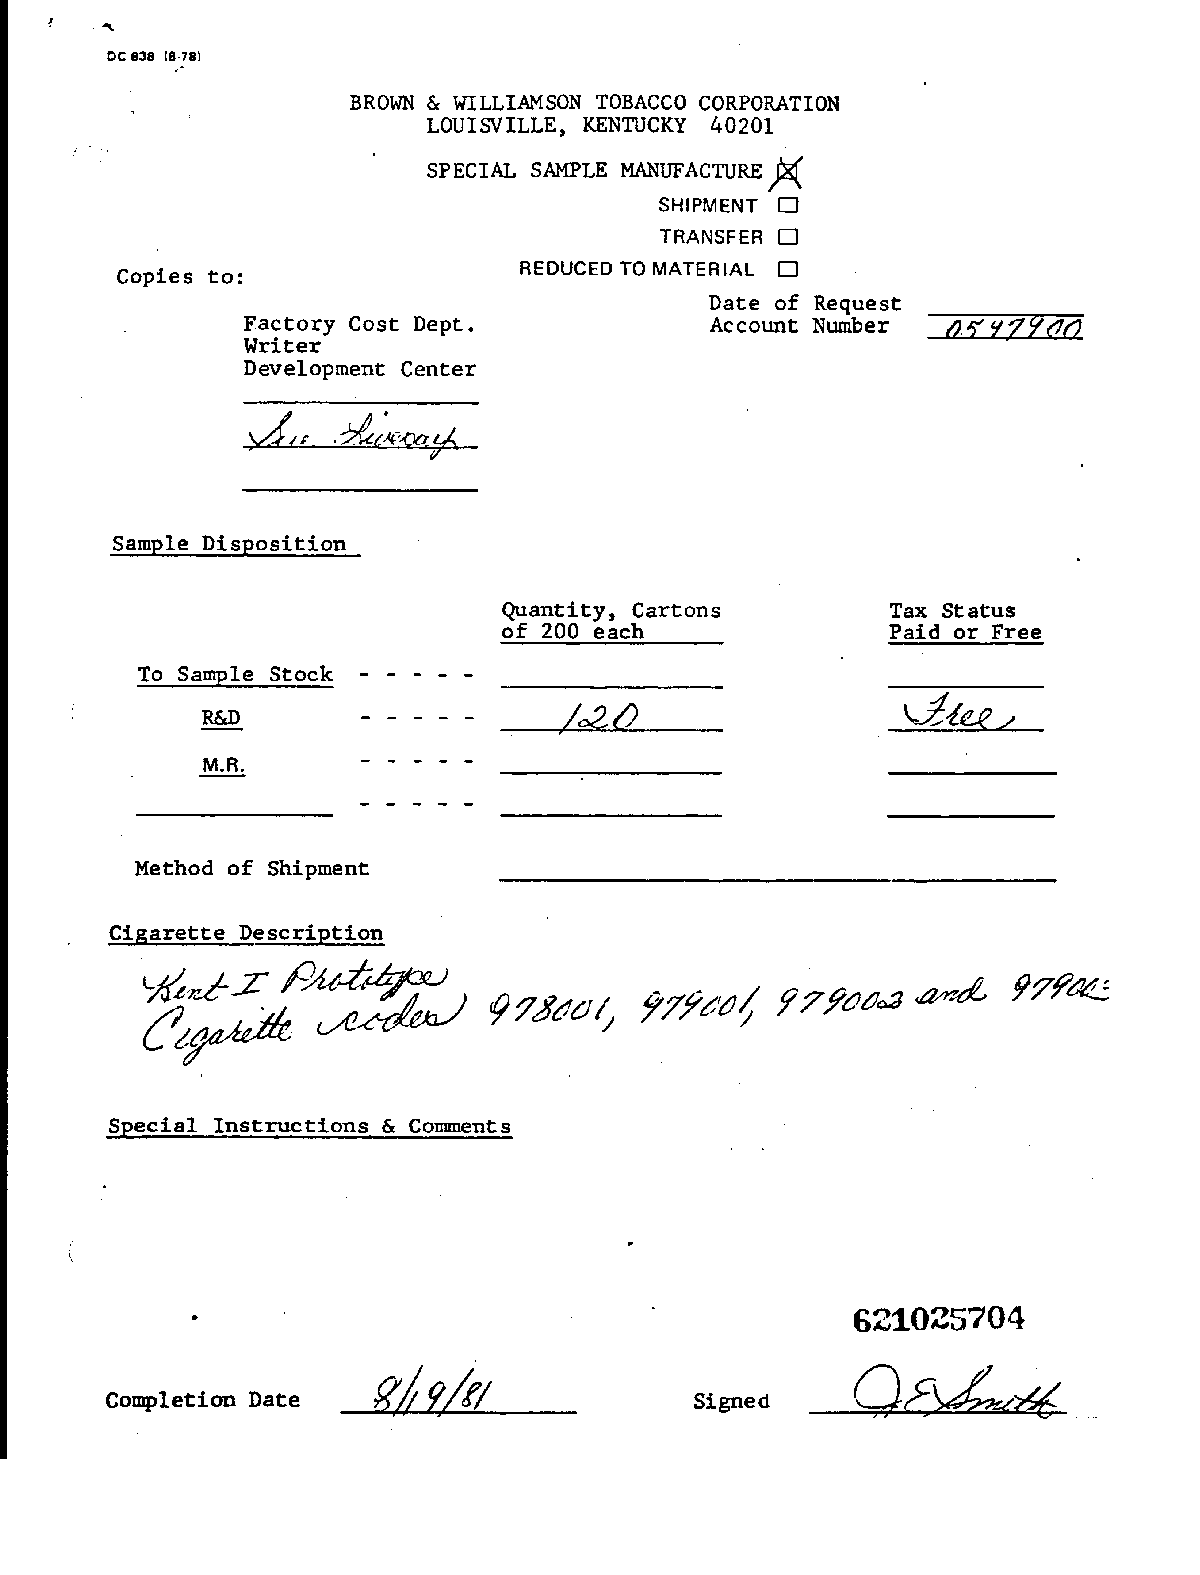 DC 838 (8-78)
BROWN & WILLIAMSON TOBACCO CORPORATION
LOUISVILLE, KENTUCKY 40201
SPECIAL SAMPLE MANUFACTURE
SHIPMENT
TRANSFER
REDUCED TO MATERIAL
Copies to:
Date of Request
Factory Cost Dept.
Account Number 0547900
Writer
Development Center
Sample Disposition
Quantity, Cartons
of 200 each
Tax Status
Paid or Free
To Sample Stock - - - - -
R&D - - - - - 120 Free
M.R. - - - - -
- - - - -
Method of Shipment
Cigarette Description
Kent I Prototype
Cigarette codes 978001, 979001, 979002 and
Special Instructions & Comments
621025704
Completion Date 8/19/81 Signed J E Smith